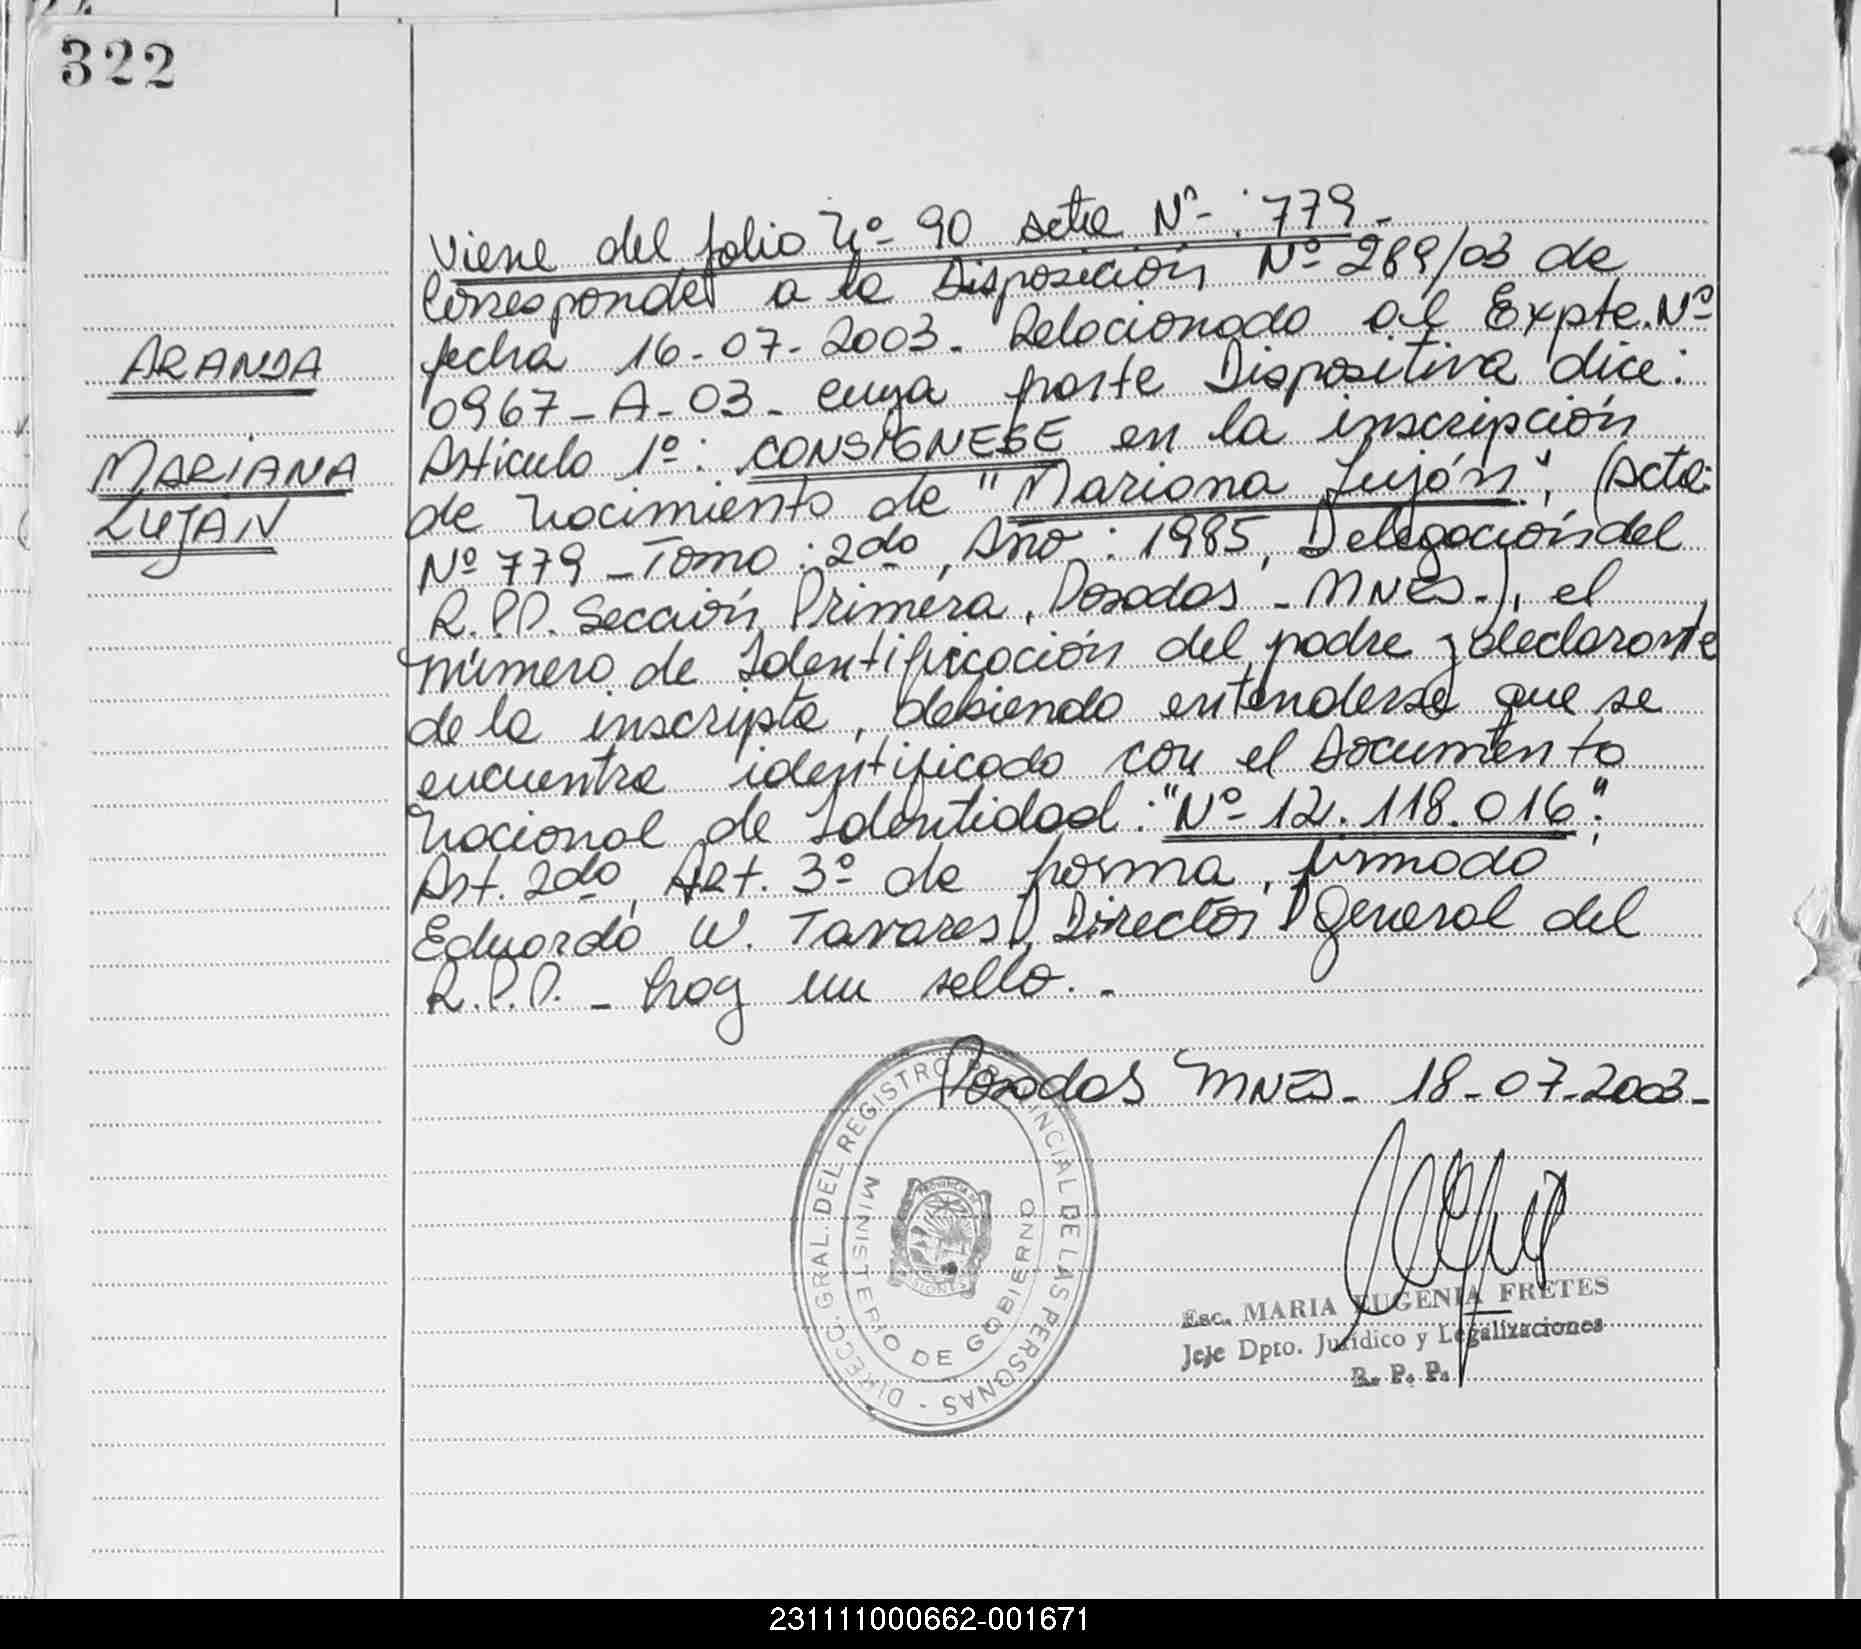 322
ARANDA
MARIANA
LUJAN
Viene del folio Nº 90 acta Nº: 779.-
Corresponde a la Disposición Nº 289/03 de
fecha 16-07-2003. Relacionado al Expte. Nº
0967-A-03- cuya parte Dispositiva dice:
Artículo 1º: CONSIGNESE en la inscripción
de nacimiento de "Mariana Luján", (Acta:
Nº 779 - Tomo: 2do, Año: 1985, Delegación del
R.P.P. Sección Primera, Posadas - MNES-), el
número de Identificación del padre y declarante
de la inscripta, debiendo entenderse que se
encuentra identificado con el Documento
Nacional de Identidad: "Nº 12.118.016";
Art. 2do, Art. 3º de forma, firmado
Eduardo W. Tavares, Director General del
R.P.P. - hay un sello. -
Posadas MNES- 18-07-2003-
DIRECC. GRAL. DEL REGISTRO PROVINCIAL DE LAS PERSONAS -
MINISTERIO DE GOBIERNO
PROVINCIA DE
MISIONES
Esc. MARIA EUGENIA FRETES
Jefe Dpto. Jurídico y Legalizaciones
R. P. P.
231111000662-001671